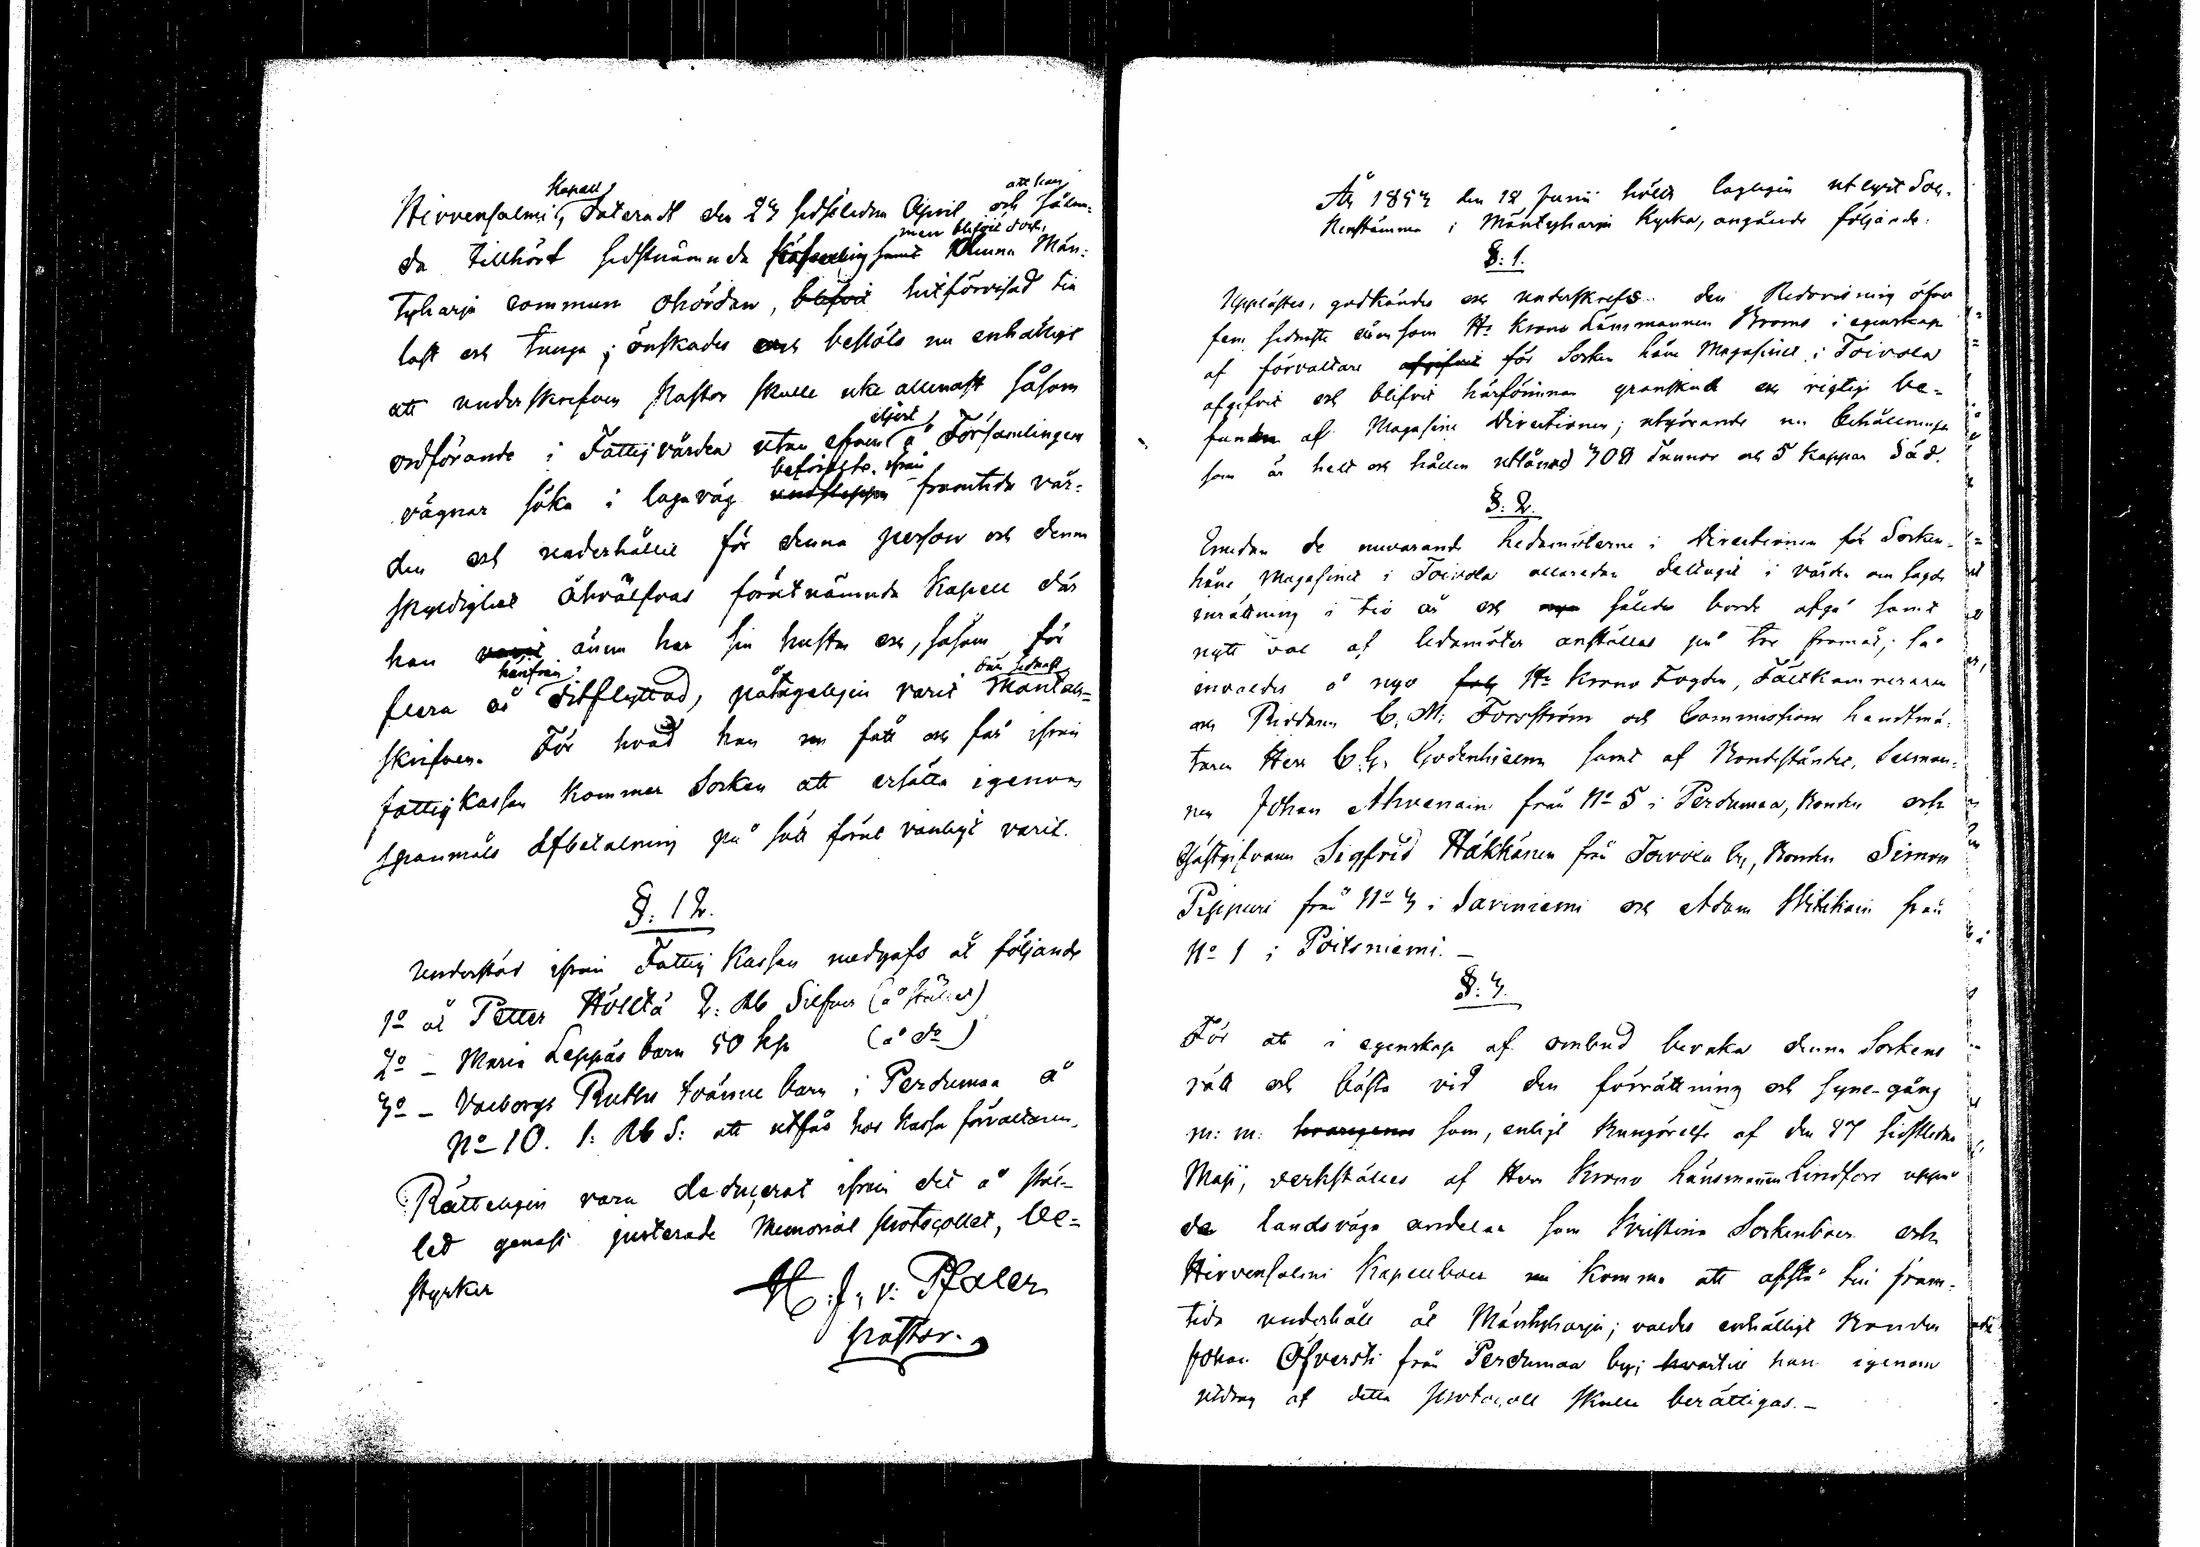 Kapell att han
Hirvensalmi, dateradt den 23 sidstledne April och sålun-
men blifvit dock,
da tillhört sidstnämnde församling samt denna Män-
tyharju commun ohördan, blifvit hitförvisad till
last och tunga; önskades och beslöts nu enhälligt
att underskrifven Pastor skulle icke allenast såsom
ordförande i Fattigvården utan ock å Församlingens
befrielse ifrån
vägnar söka i laga väg framtida vår-
den och underhållet för denna person och denna
skyldighet åhvälfvas förutnämnde Kapell där
han varit ännu har sin hustru och, såsom för
härifrån där sednast
flera år ditflyttad, påtageligen varit Mantals-
skrifven. För hvad han nu fått och får ifrån
fattigkassan kommer Socken att ersätta igenom
spanmåls afbetalning på sätt förut vanligt varit.
§: 12.
Understöd ifrån Fattig Kassan medgafs åt följande
1o åt Petter Hölttä 2: Rb Silfver (å stället)
2o – Maria Leppäs barn 50 kp (å do)
3o – Valborgs Ruuths tvänne barn i Pertumaa å
No 10. 1: Rb S: att utfås hos Kassa förvaltaren.
Rätteligen vara deducerat ifrån det å stäl-
let genast justerade Memorial protocollet, be-
styrker
H. J. v: Pfaler
pastor.
År 1853 den 12 Junii hölls lagligen utlyst Soc-
kenstämma i Mäntyharju Kyrka, angående följande:
§: 1.
Upplästes, godkändes och underskrefs den Redovisning öfver
fem sednaste åren som Hr Krono Länsmannen Broms i egenskap
af förvaltare afgifvit för Socken Låne Magasinet i Toivola
afgifvit och blifvit härförinnan granskad och rigtig be-
funnen af Magasins Directionen; utgörande nu behållningen
som är hel och hållen utlånad 708 Tunnor och 5 Kappar Säd.
§: 2.
Emedan de nuvarande Ledamöterne i Directionen för Socken-
låne Magasinet i Toivola allaredan deltagit i vården om sagde
inrättning i tio år och således borde afgå samt
nytt val af ledamöter anställas på tio framåt; så
invaldes å nyo Hr Krono Fogden, Fältkamreraren
och Riddaren C. M. Forsström och Commissions Landtmä-
taren Herr C. G. Godenhielm samt af Bondeståndet, Sexman-
nen Johan Ahvenain från No 5 i Pertumaa, Bonden och
Gästgifvaren Sigfrid Häkkänen från Toivola by, Bonden Simon
Pippuri från No 3 i Sarviniemi och Adam Hitikain från
No 1 i Poitsniemi. –
§: 3.
För att i egenskap af ombud bevaka denna Sockens
rätt och bästa vid den förrättning och syne-gång
m: m: hvarigenom som, enligt Kungörelse af den 27 sidstledne
Maji, verkställes af Herr Krono Länsmannen Lindfors uppå
de landsvägs andelar som Kristina Sockenboer och
Hirvensalmi Kapellboer nu komma att afstå till fram-
tida underhåll åt Mäntyharju; valdes enhälligt Bonden
Johan Öfversti från Pertumaa by; hvartill han igenom
utdrag af detta protocoll skulle berättigas. –